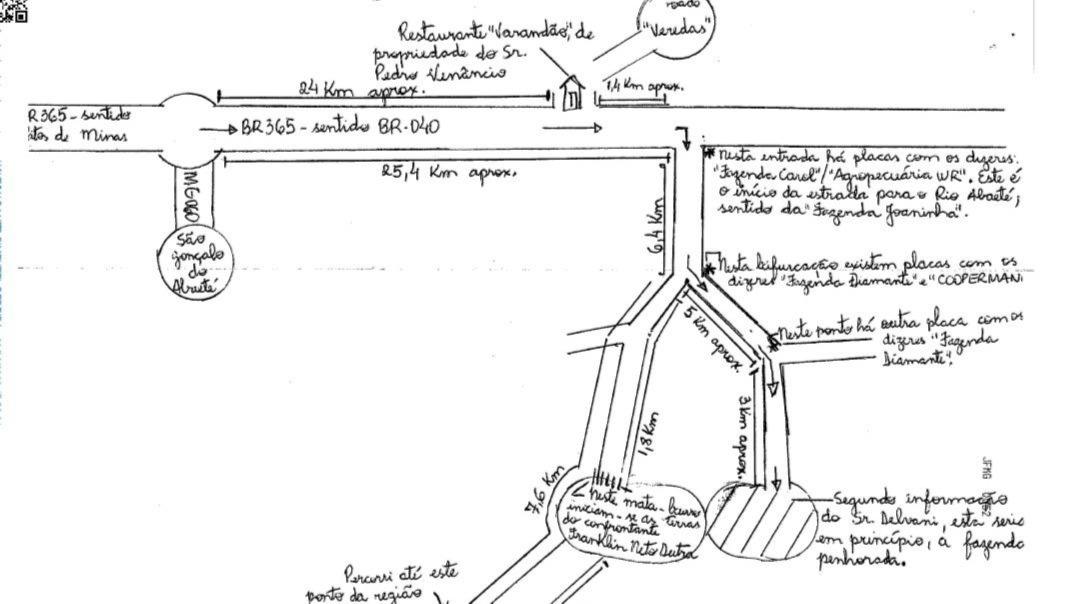 "Veredas"
Restaurante "Varandão", de
propriedade do Sr.
Pedro Venâncio
24 Km aprox.
1,4 Km aprox.
R365 - sentido
de Minas
BR365 - sentido BR-040
25,4 Km aprox.
MG060
São
Gonçalo
do
Abaeté
* Nesta entrada há placas com os dizeres:
"Fazenda Carol"/"Agropecuária WR". Este é
o início da estrada para o Rio Abaeté,
sentido da "Fazenda Joaninha".
6,4 Km
* Nesta bifurcação existem placas com os
dizeres "Fazenda Diamante" e "COOPERMAN
5 Km aprox.
* Neste ponto há outra placa com os
dizeres "Fazenda
Diamante".
1,8 Km
3 Km aprox.
7,6 Km
Neste mata-burro
iniciam-se as terras
do confrontante
Franklin Neto Dutra
Segundo informação
do Sr. Delvani, esta seria
em princípio, a fazenda
penhorada.
JFMG
Percorri até este
ponto da região